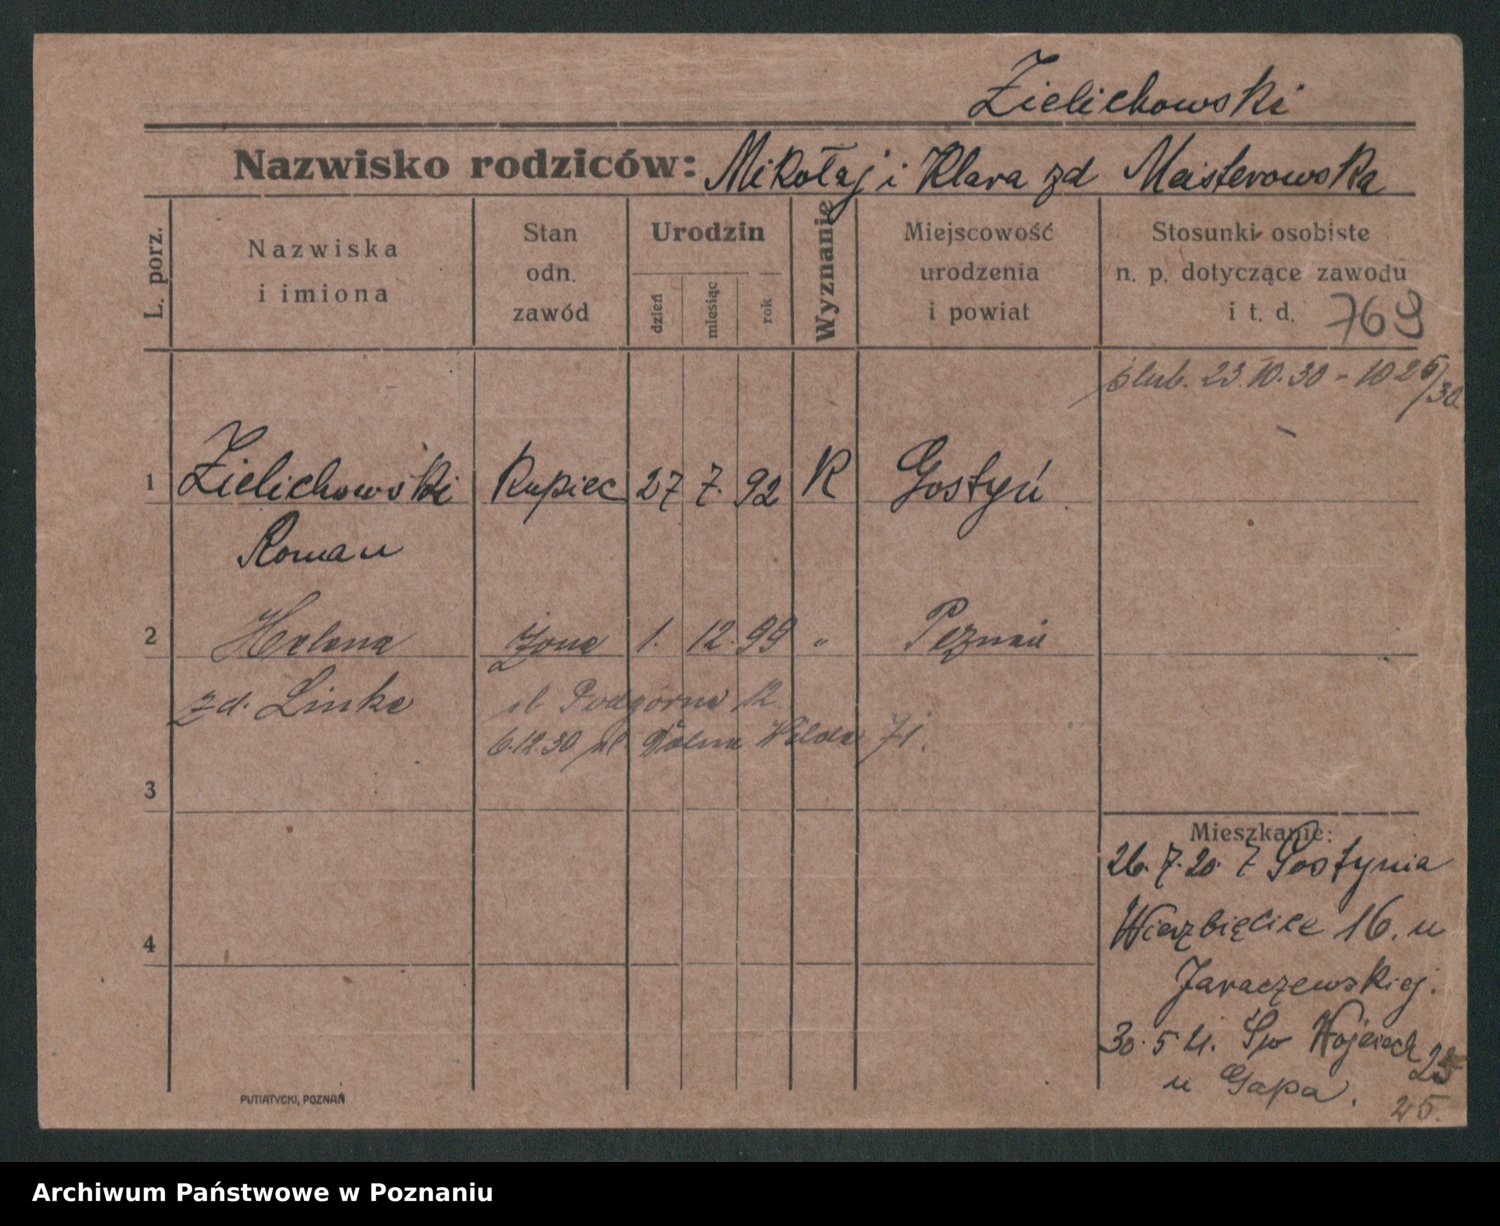 Zielichowski
Nazwisko rodziców: Mikołaj i Klara zd Meisterowska
L. porz.
Nazwiska
i imiona
Stan
odn.
zawód
Urodzin
dzień
miesiąc
rok
Wyznanie
Miejscowość
urodzenia
i powiat
Stosunki osobiste
n. p. dotyczące zawodu
i t. d. 769
ślub. 23.10.30 - 1026/30
1 Zielichowski Kupiec 27 7. 92 R Gostyń
Roman
2 Helena żona 1. 12. 99 " Poznań
zd. Linke ul Podgórna 12
6.12.30 ul Dolna Wilda 71.
3
4
Mieszkanie:
26. 7. 20. z Gostynia
Wierzbięcice 16. u
Jaraczewskiej.
30. 5 21. Św Wojciech 25
u Gapa. 25.
PUTIATYCKI, POZNAŃ
Archiwum Państwowe w Poznaniu